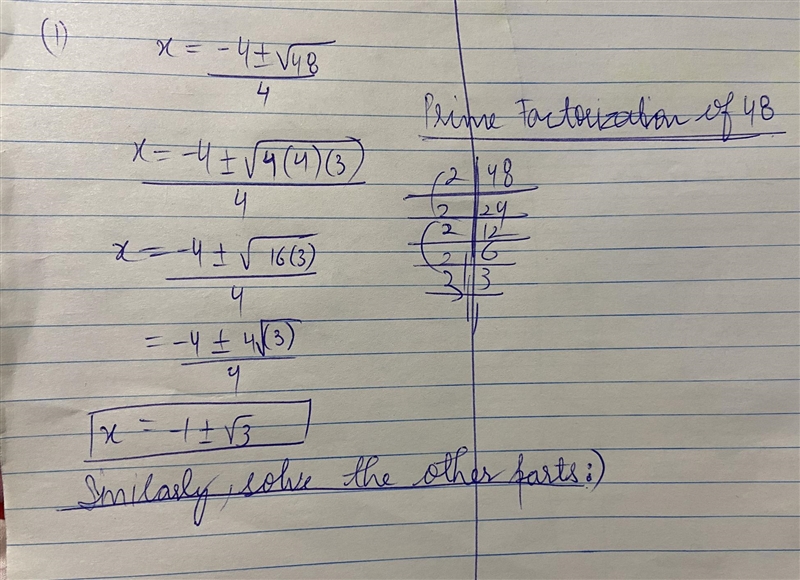 (1)
x = -4±√48
4
x = -4 ± √4(4)(3)
4
x = -4 ± √16(3)
4
= -4 ± 4√(3)
4
x = -1 ± √3
Similarly, solve the other parts:)
Prime Factorization of 48
2 | 48
2 | 24
2 | 12
2 | 6
3 | 3